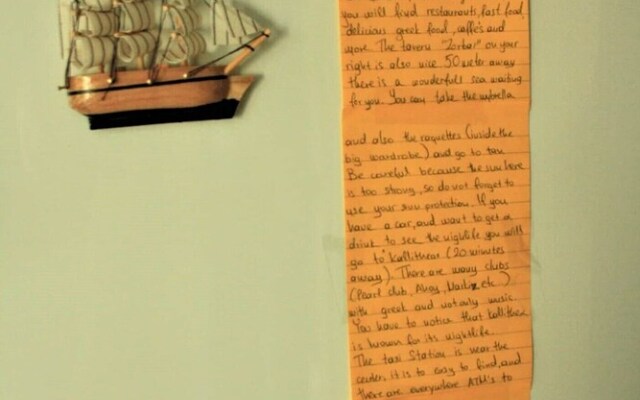 you will find restaurants, fast food,
delicious greek food, caffe's and
more. The tavern "Zorbas" on your
right is also nice. 50 meter away
there is a wonderfull sea waiting
for you. You can take the umbrella
and also the raquettes (inside the
big wardrobe) and go to tan
Be careful because the sun here
is too strong, so do not forget to
use your sun protection. If you
have a car, and want to get a
drink to see the nightlife you will
go to Kallithea (20 minutes
away). There are many clubs
(Pearl club, Ahoy, etc)
with greek and not only music.
You have to notice that Kallithea
is known for its nightlife.
The taxi Station is near the
center, it is to easy to find, and
there are everywhere ATM's to